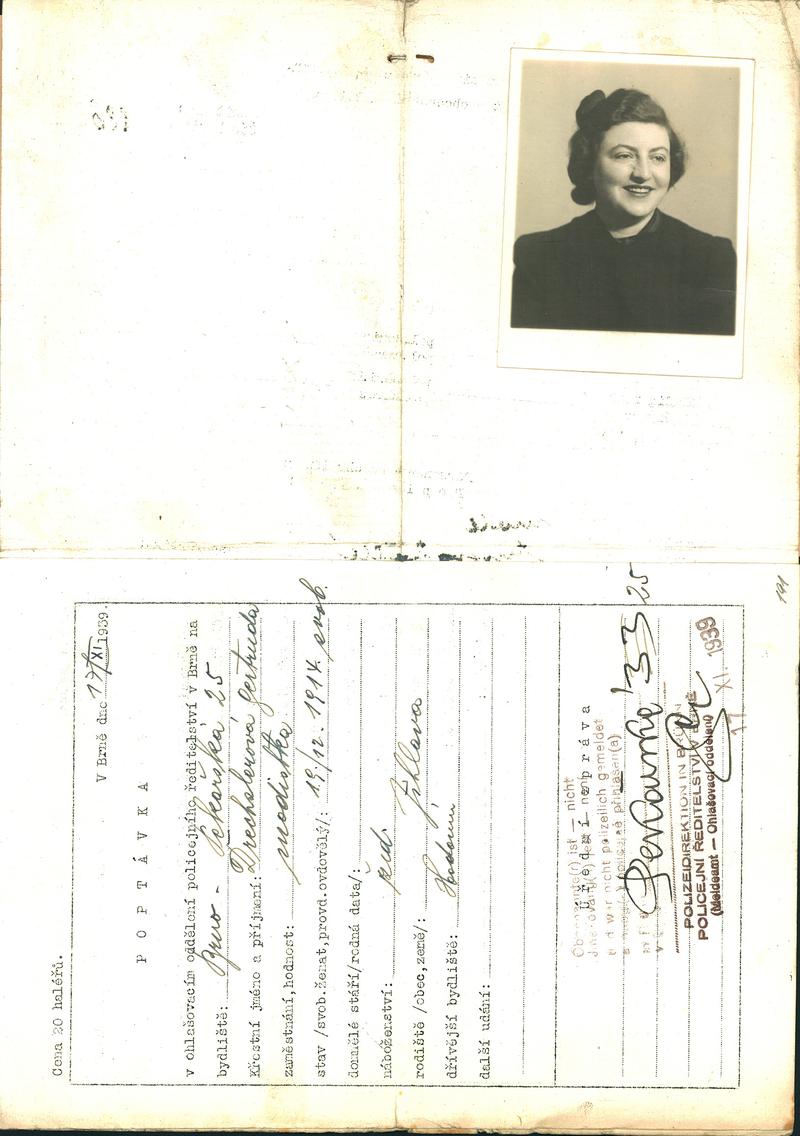 Cena 20 haléřů.
V Brně dne 17/XI 1939.
P O P T Á V K A
v ohlašovacím oddělení policejního ředitelství v Brně na
bydliště: Brno - Pekařská 25
Křestní jméno a příjmení: Drechslerová Gertruda
zaměstnání,hodnost: modistka
stav /svob.ženat,provd.ovdovělý/: 19/12. 1914. svob.
domnělé stáří/rodná data/:
náboženství: žid.
rodiště /obec,země/: Jihlava
dřívější bydliště: Hodonín
další udání:
Úřední zpráva
Obengenannte(r) ist — nicht
und war nicht polizeilich gemeldet
33 25
POLIZEIDIREKTION IN BRÜNN
POLICEJNÍ ŘEDITELSTVÍ V BRNĚ
(Meldeamt — Ohlašovací oddělení)
17 XI. 1939
191